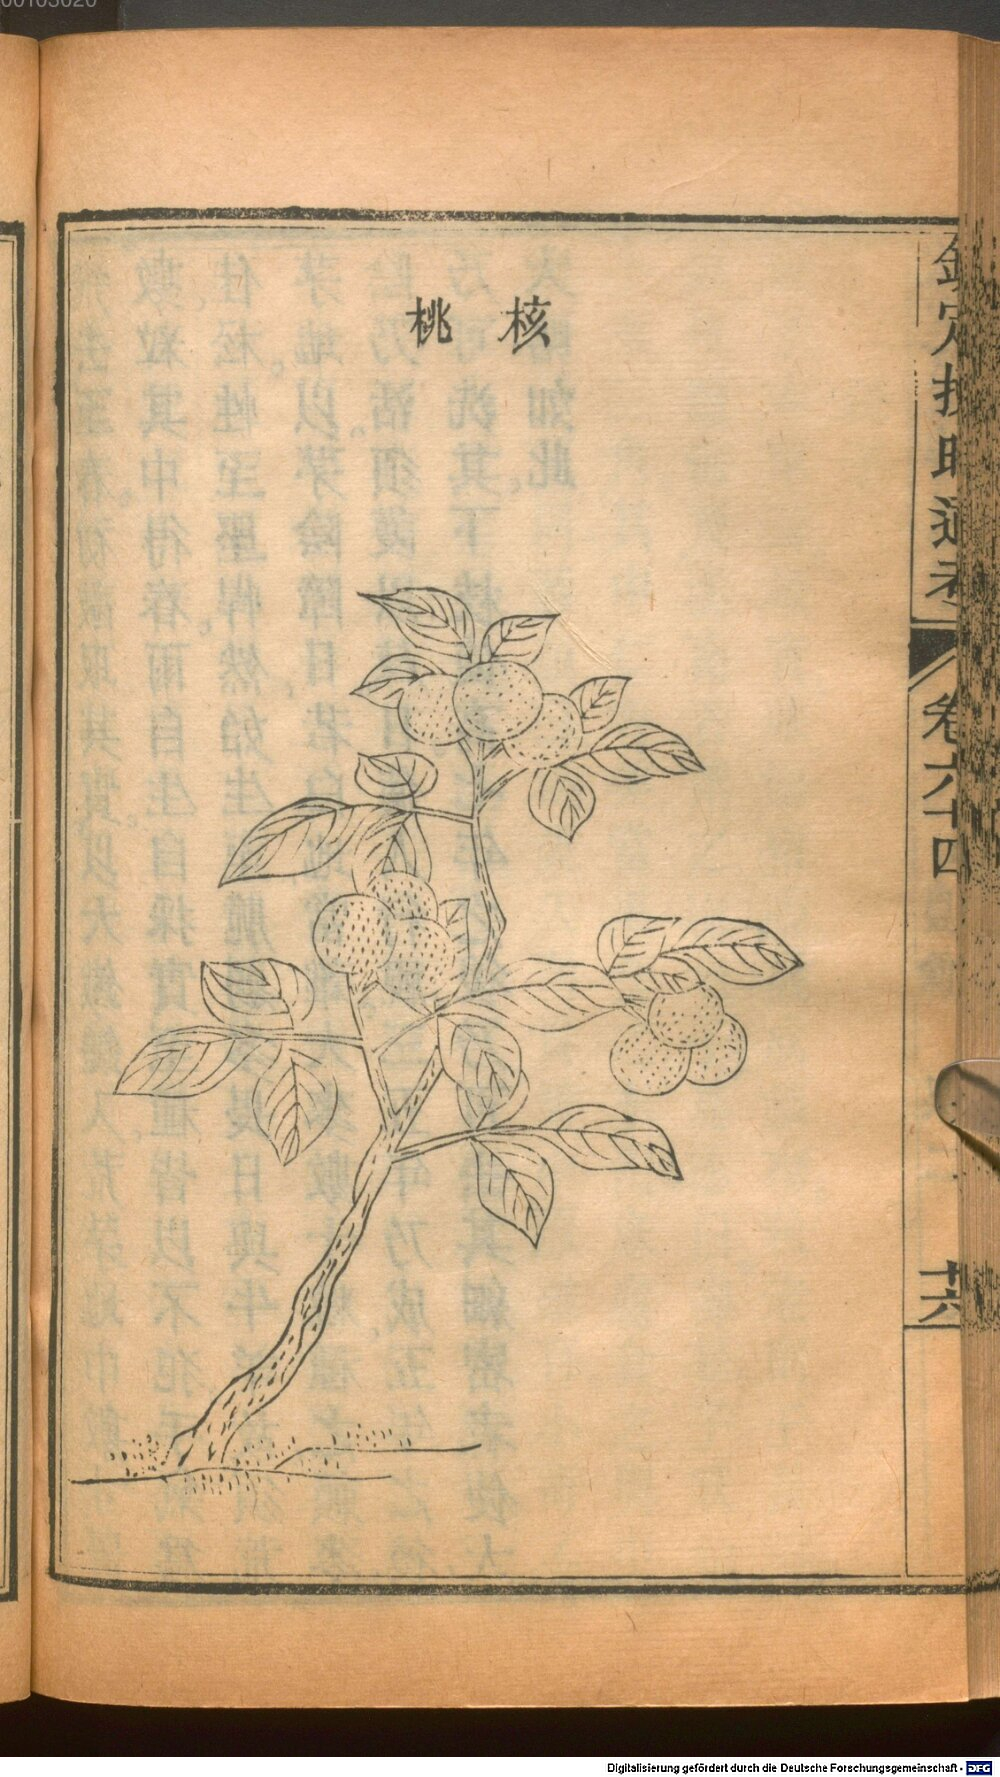 核桃
欽定授時通考
卷六十四
共
Digitalisierung gefördert durch die Deutsche Forschungsgemeinschaft - DFG